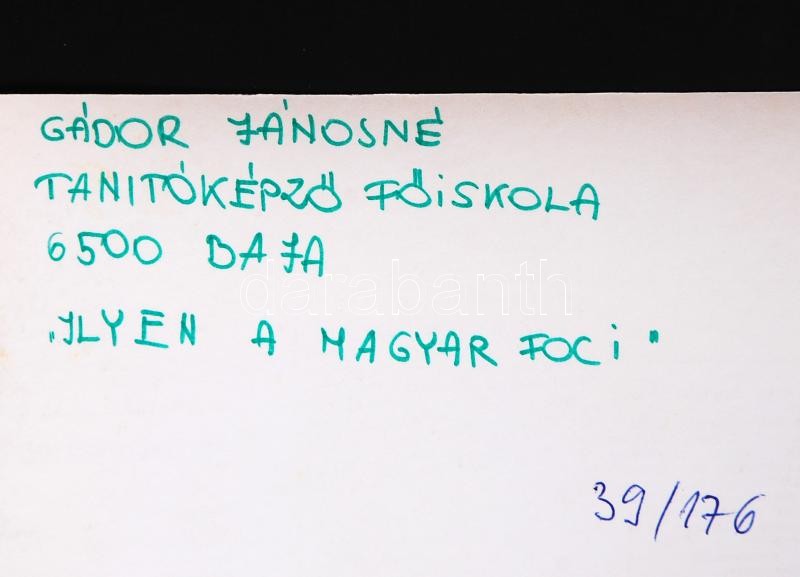 GÁDOR JÁNOSNÉ
TANITÓKÉPZŐ FŐiSKOLA
6500 BAJA
darabanth
„ILYEN A MAGYAR FOCi"
39/176